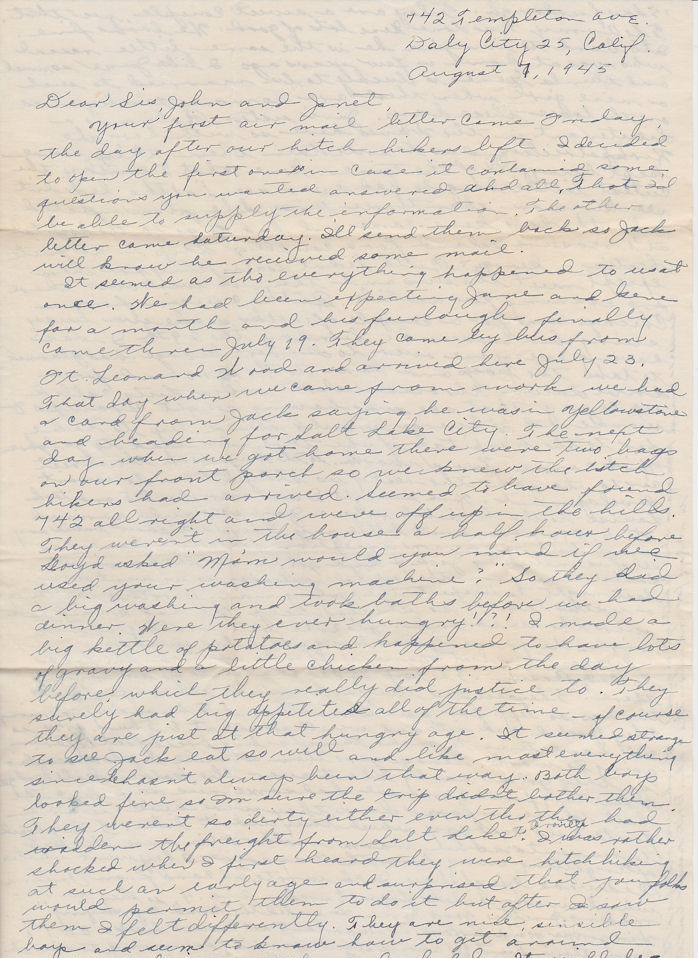 742 Templeton Ave.
Daly City 25, Calif.
August 7, 1945
Dear Sis, John and Janet,
Your first air mail letter came Friday,
the day after our hitch hikers left. I decided
to open the first one in case it contained some
questions you wanted answered and all, that I'd
be able to supply the information. The other
letter came Saturday. I'll send them back so Jack
will know he received some mail.
It seemed as tho everything happened to us at
once. We had been expecting Jane and Gene
for a month and his furlough finally
came thru July 19. They came by bus from
Ft. Leonard Wood and arrived here July 23.
That day when we came from work we had
a card from Jack saying he was in Yellowstone
and heading for Salt Lake City. The next
day when we got home there were two bags
on our front porch so we knew the hitch
hikers had arrived. Seemed to have found
742 all right and were off up in the hills.
They weren't in the house a half hour before
Lloyd asked "Mom would you mind if we
used your washing machine?" So they had
a big washing and took baths before we had
dinner. Were they ever hungry!?! I made a
big kettle of potatoes and happened to have lots
of gravy and a little chicken from the day
before, which they really did justice to. They
surely had big appetites all of the time - of course
they are just at that hungry age. It seemed strange
to see Jack eat so well and like most everything
since hasn't always been that way. Both boys
looked fine so I'm sure the trip didn't bother them.
They weren't so dirty either even tho they had
ridden the freight from Salt Lake to I was rather
shocked when I first heard they were hitch hiking
at such an early age and surprised that you folks
would permit them to do it but after I saw
them I felt differently. They are nice, sensible
boys and seem to know how to get around